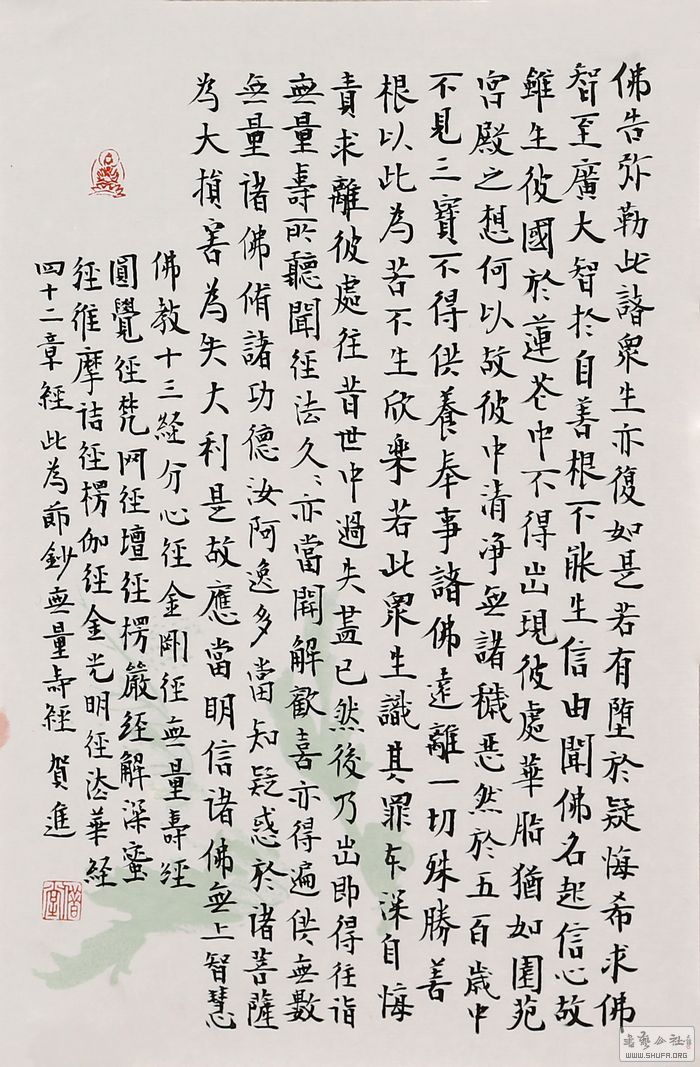 佛告弥勒此諸眾生亦復如是若有堕於疑悔希求佛
智至廣大智於自善根不能生信由聞佛名起信心故
雖生彼國於蓮花中不得出現彼處華胎猶如園苑
宮殿之想何以故彼中清净無諸穢惡然於五百歲中
不見三寶不得供養奉事諸佛遠離一切殊勝善
根以此為苦不生欣樂若此眾生識其罪本深自悔
責求離彼處往昔世中過失盖已然後乃出即得往詣
無量壽所聽聞經法久々亦當開解歡喜亦得遍供無數
無量諸佛脩諸功德汝阿逸多當知疑惑於諸菩薩
為大損害為失大利是故應當明信諸佛無上智慧
佛教十三経分心径金剛径無量壽經
圓覺径梵网径壇径楞嚴経解深蜜
径維摩詰径楞伽径金光明径法華経
四十二章經此為節鈔無量壽經 賀進
書藝公社
WWW.SHUFA.ORG